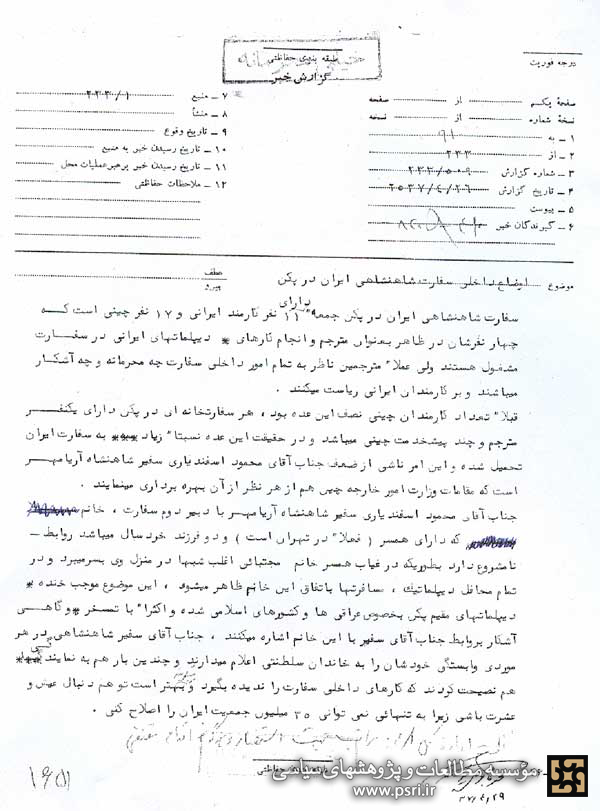 طبقه بندی حفاظتی
گزارش خبر
درجه فوریت
صفحهٔ یکم از صفحه
نسخهٔ شماره از نسخه
۱ ـ به
۲ ـ از ۳۳۳
۳ ـ شماره گزارش
۴ ـ تاریخ گزارش ۲۵۳۷/۴/۲۶
۵ ـ پیوست
۶ ـ گیرندگان خبر
۷ ـ منبع
۸ ـ منشأ
۹ ـ تاریخ وقوع
۱۰ ـ تاریخ رسیدن خبر به منبع
۱۱ ـ تاریخ رسیدن خبر برهبر عملیات محل
۱۲ ـ ملاحظات حفاظتی
موضوع اوضاع داخلی سفارت شاهنشاهی ایران در پکن
عطف
پیرو
سفارت شاهنشاهی ایران در پکن جمعا" دارای ۱۱ نفر کارمند ایرانی و ۱۷ نفر چینی است که
چهار نفرشان در ظاهر بعنوان مترجم و انجام کارهای دیپلماتهای ایرانی در سفارت
مشغول هستند ولی عملا" مترجمین ناظر به تمام امور داخلی سفارت چه محرمانه و چه آشکار
میباشند و بر کارمندان ایرانی ریاست میکنند .
قبلا" تعداد کارمندان چینی نصف این عده بود ، هر سفارتخانه ای در پکن دارای یکنفر
مترجم و چند پیشخدمت چینی میباشد و در حقیقت این عده نسبتا" زیاد به سفارت ایران
تحمیل شده و این امر ناشی از ضعف جناب آقای محمود اسفندیاری سفیر شاهنشاه آریامهر
است که مقامات وزارت امور خارجه چین هم از هر نظر از آن بهره برداری مینمایند .
جناب آقای محمود اسفندیاری سفیر شاهنشاه آریامهر با دبیر دوم سفارت ، خانم
که دارای همسر ( فعلا" در تهران است ) و دو فرزند خردسال میباشد روابط ـ
نامشروع دارد بطوریکه در غیاب همسر خانم مجتبائی اغلب شبها در منزل وی بسر میبرد و در
تمام محافل دیپلماتیک ، مسافرتها باتفاق این خانم ظاهر میشود ، این موضوع موجب خنده
دیپلماتهای مقیم پکن بخصوص عراقی ها و کشورهای اسلامی شده و اکثرا" با تمسخر و گاهی
آشکار بروابط جناب آقای سفیر با این خانم اشاره میکنند ، جناب آقای سفیر شاهنشاهی در هر
موردی وابستگی خودشان را به خاندان سلطنتی اعلام میدارند و چندین بار هم به نمایندگی
هم نصیحت کردند که کارهای داخلی سفارت را ندیده بگیرد و بهتر است تو هم دنبال عیش و
عشرت باشی زیرا به تنهائی نمی توانی ۳۵ میلیون جمعیت ایران را اصلاح کنی .
طبقه بندی حفاظتی
۳۷/۴/۲۹
۱۶۵۱
موسسه مطالعات و پژوهشهای سیاسی
www.psri.ir